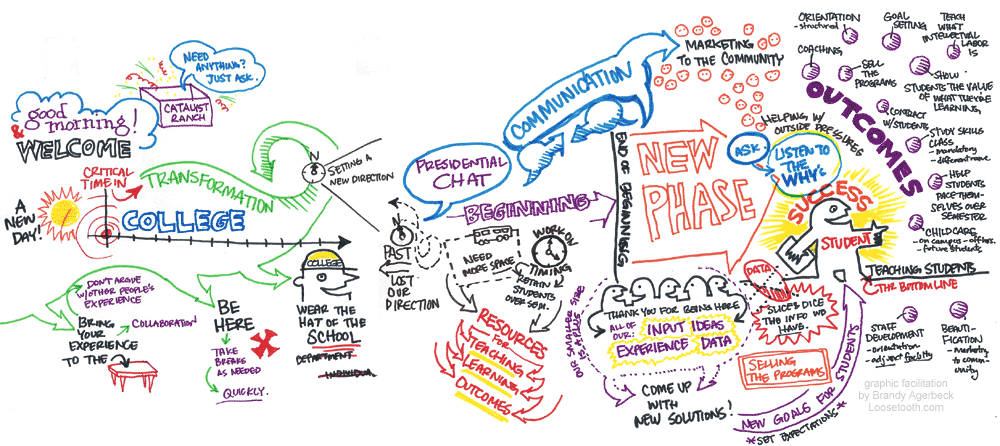 NEED
ANYTHING?
JUST ASK.
CATALYST
RANCH
good
morning!
&
WELCOME
CRITICAL
TIME IN
TRANSFORMATION
N
SETTING A
NEW DIRECTION
A
NEW
DAY!
COLLEGE
DON'T ARGUE
W/OTHER PEOPLE'S
EXPERIENCE
COLLABORATION
BRING YOUR
EXPERIENCE
TO THE
BE
HERE
TAKE
BREAKS
AS NEEDED
QUICKLY.
COLLEGE
WEAR THE
HAT OF THE
SCHOOL
DEPARTMENT
INDIVIDUAL
PRESIDENTIAL
CHAT
COMMUNICATION
MARKETING
TO THE COMMUNITY
BEGINNING
N
PAST
LOST
OUR
DIRECTION
NEED
MORE SPACE
WORK ON
TIMING
RETAIN
STUDENTS
OVER SEM.
RESOURCES
FOR
TEACHING
LEARNING
OUTCOMES
END OF BEGINNING
NEW
PHASE
OUR SMALLER SIZE
IS A PLUS
THANK YOU FOR BEING HERE
ALL OF
OUR:
INPUT IDEAS
EXPERIENCE DATA
COME UP
WITH
NEW SOLUTIONS!
DATA
SLICE & DICE
THE INFO WE
HAVE.
SELLING
THE PROGRAMS
NEW GOALS FOR STUDENTS
*SET EXPECTATIONS*
HELPING W/
OUTSIDE PRESSURES
ASK.
LISTEN TO
THE WHY'S
SUCCESS
STUDENT
TEACHING STUDENTS
THE BOTTOM LINE
OUTCOMES
ORIENTATION
- structural
GOAL
SETTING
TEACH
WHAT
INTELLECTUAL
LABOR
IS
COACHING
SELL
THE
PROGRAMS
SHOW
STUDENTS THE VALUE
OF WHAT THEY'RE
LEARNING,
CONTRACT
W/STUDENTS
STUDY SKILLS
CLASS
- mandatory
- different name
HELP
STUDENTS
PACE THEM-
SELVES OVER
SEMESTER
CHILDCARE
- on campus - others.
- future students
STAFF
DEVELOPMENT
- orientation
- adjunct faculty
BEAUTI-
FICATION
- marketing
to comm-
unity
graphic facilitation
by Brandy Agerbeck
Loosetooth.com